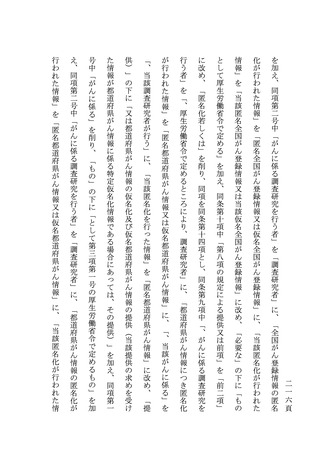 二一六頁
を加え、同項第二号中「がんに係る調査研究を行う者」を「調査研究者」に、「全国がん登録情報の匿名
化が行われた情報」を「匿名全国がん登録情報又は仮名全国がん登録情報」に、「当該匿名化が行われた
情報」を「当該匿名全国がん登録情報又は当該仮名全国がん登録情報」に改め、「必要な」の下に「もの
として厚生労働省令で定める」を加え、同条第十項中「第八項の規定による提供又は前項」を「前二項」
に改め、「匿名化若しくは」を削り、同項を同条第十四項とし、同条第九項中「、がんに係る調査研究を
行う者」を「、厚生労働省令で定めるところにより、調査研究者」に、「都道府県がん情報につき匿名化
が行われた情報」を「匿名都道府県がん情報又は仮名都道府県がん情報」に、「、当該がんに係る」を
「、当該調査研究者が行う」に、「当該匿名化を行った情報」を「匿名都道府県がん情報」に改め、「提
供）」の下に「又は都道府県がん情報の仮名化及び仮名都道府県がん情報の提供（当該提供の求めを受け
た情報が都道府県がん情報に係る特定仮名化情報である場合にあっては、その提供）」を加え、同項第一
号中「がんに係る」を削り、「もの」の下に「として第三項第一号の厚生労働省令で定めるもの」を加
え、同項第二号中「がんに係る調査研究を行う者」を「調査研究者」に、「都道府県がん情報の匿名化が
行われた情報」を「匿名都道府県がん情報又は仮名都道府県がん情報」に、「当該匿名化が行われた情